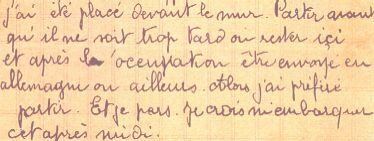 j'ai été placé devant le mur. Partir avant
qu'il ne soit trop tard ou rester içi
et après l'occupation être envoyé en
allemagne ou ailleurs. Alors j'ai préféré
partir. Et je pars. Je crois m'embarquer
cet après midi.